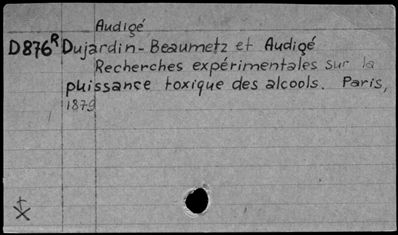 Audigé
D876R Dujardin-Beaumetz et Audigé
Recherches expérimentales sur la
puissance toxique des alcools. Paris,
1879